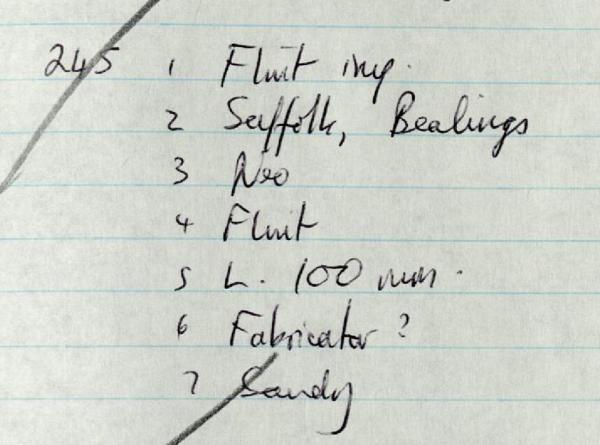 245 1 Flint imp.
2 Suffolk, Bealings
3 Neo
4 Flint
5 L. 100 mm.
6 Fabricator ?
7 Sandy